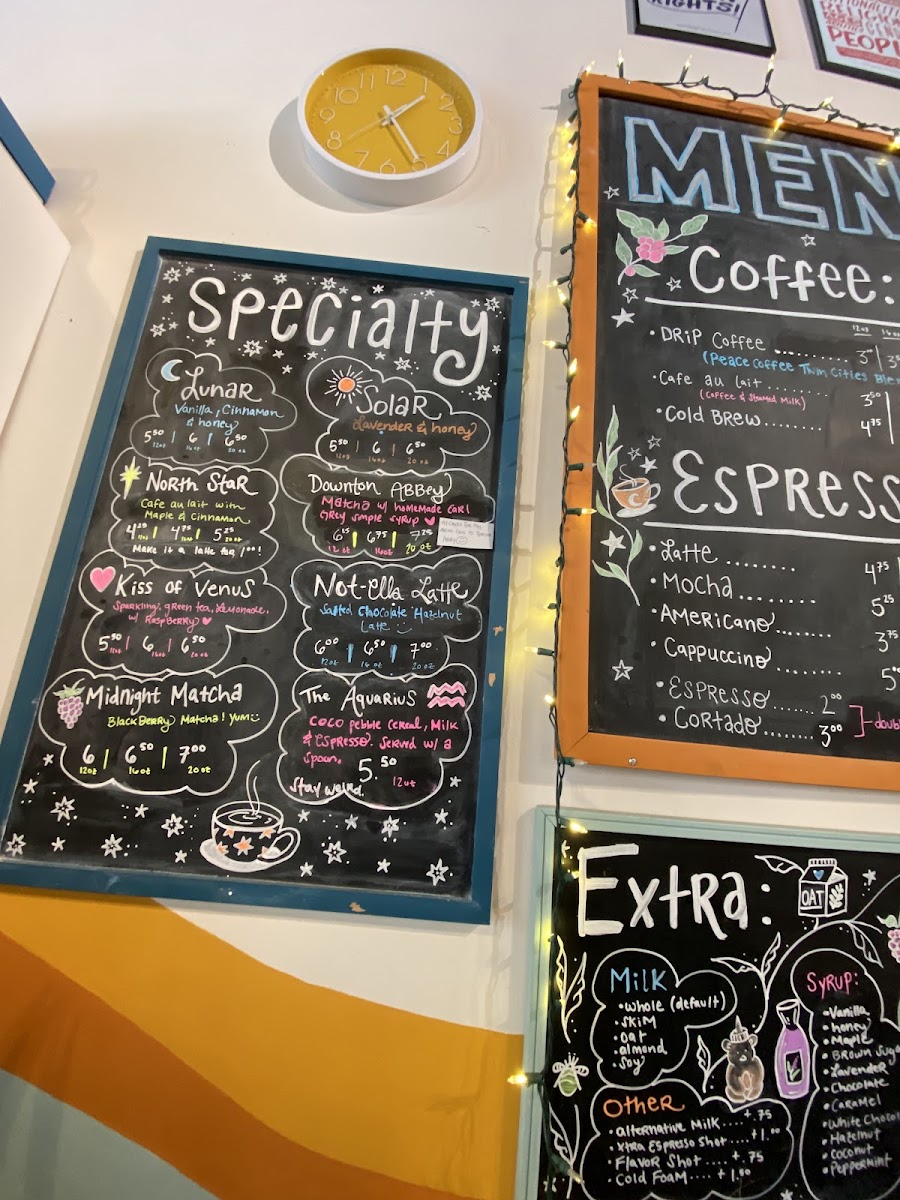 12
1
2
3
4
5
6
7
8
9
10
11
SPecialty
Lunar
Vanilla, Cinnamon
& honey
5.50 | 6 | 6.50
12oz 16oz 20oz
Solar
Lavender & honey
5.50 | 6 | 6.50
12oz 16oz 20oz
North Star
Cafe au lait with
Maple & Cinnamon
4.25 | 4.75 | 5.25
12oz 16oz 20oz
Downton Abbey
Matcha w/ homemade Earl
Grey simple syrup
12oz 16oz 20oz
Kiss of Venus
Sparkling green tea, Lemonade,
w/ Raspberry
5.50 | 6 | 6.50
12oz 16oz 20oz
Not-ella Latte
Salted Chocolate Hazelnut
Latte
6.00 | 6.50 | 7.00
12oz 16oz 20oz
Midnight Matcha
BlackBerry Matcha! Yum
6 | 6.50 | 7.00
12oz 16oz 20oz
The Aquarius
Coco pebble cereal, Milk
& Espresso. Served w/ a
spoon. 5.50 12oz
Stay weird.
RIGHTS!
PEOPL
MEN
Coffee:
12oz
• Drip Coffee
(Peace Coffee Twin Cities Blen
• Cafe au lait ........ 3.50
(Coffee & Steamed Milk)
• Cold Brew ........ 4.75
Espress
• Latte ........ 4.75
• Mocha ........ 5.25
• Americano ........ 3.75
• Cappuccino
• Espresso ...... 2.00
• Cortado ........ 3.00
Extra:
OAT
Milk
• whole (default)
• skim
• oat
• almond
• soy
Other
• alternative Milk .... +.75
• xtra Espresso Shot .... +1.00
• Flavor Shot .... +.75
• Cold Foam .... +1.50
Syrup:
• Vanilla
• honey
• Maple
• Brown Suga
• Lavender
• Chocolate
• Caramel
• White Chocol
• Hazelnut
• coconut
• peppermint